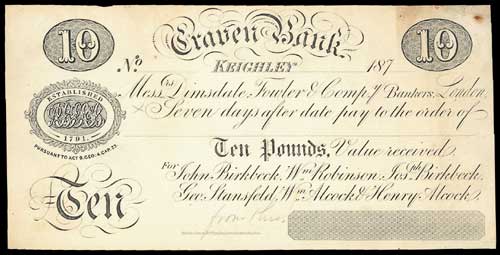 10 Craven Bank. 10
No KEIGHLEY 187
Messrs Dimsdale, Fowler & Compy Bankers, London.
ESTABLISHED
1791.
PURSUANT TO ACT 9. GEO. 4. CAP. 23.
Seven days after date pay to the order of
Ten Pounds, Value received
For John Birkbeck, Wm Robinson, Josph Birkbeck,
Geo. Stansfeld, Wm Alcock & Henry Alcock.
Ten
from